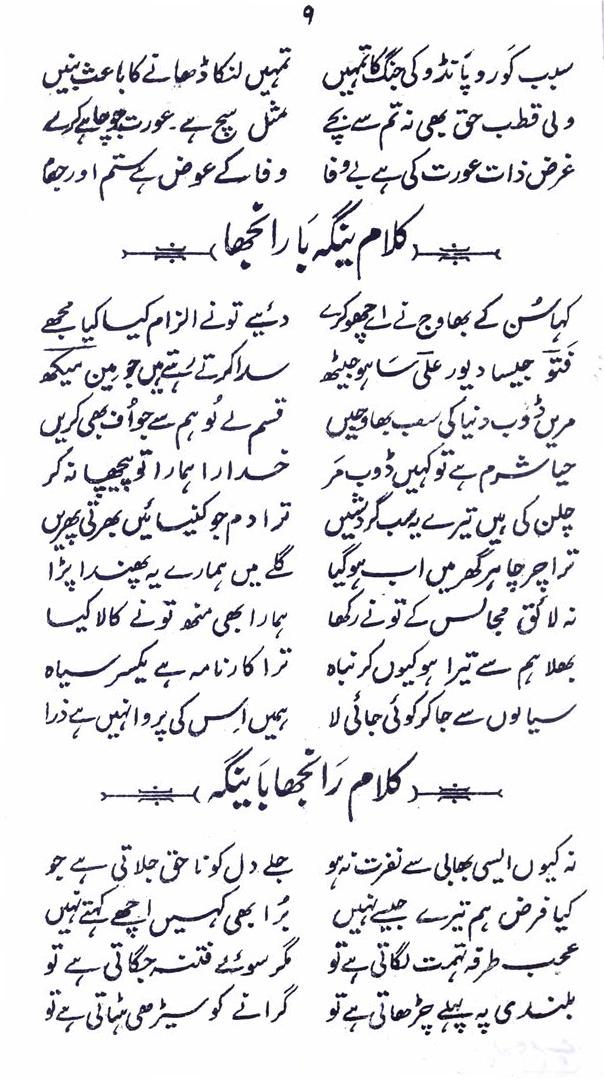 ۹
سبب کَورو پَانڈو کی جنگ کا تمہیں تمہیں لنکا ڈھانے کا باعث بنیں
ولی قطب حق بھی نہ تم سے بچے مثل سچ ہے۔ عورت جو چاہے کرے
غرض ذات عورت کی ہے بے وفا وفا کے عوض ہے ستم اور جفا
کلام بینگہ بَا رانجھا
کہا سُن کے بھاوج نے اے چھوکرے دئیے تو نے الزام کیا کیا مجھے
فَتوّ جیسا دیور علیؔ سَا ہو جیٹھ سدا کرتے رہتے ہیں جو مین سیکھ
مریں ڈوب دنیا کی سب بھاوجیں قسم لے لُو ہم سے جو اُف بھی کریں
حیا شرم ہے تو کہیں ڈوب مَر خدارا ہمارا تو پیچھا نہ کر
چلن کی ہیں تیرے یہ سب گردشیں ترا دم جو کنیائیں بھرتی پھریں
ترا چرچا ہر گھر میں اب ہو گیا گلے میں ہمارے یہ پھندا پڑا
نہ لائق مجالس کے تو نے رکھا ہمارا بھی منھ تو نے کالا کیا
بھلا ہم سے تیرا ہو کیوں کر نباہ ترا کارنامہ ہے یکسر سیاہ
سیالوں سے جا کر کوئی جائی لا ہمیں اِس کی پروا نہیں ہے ذرا
کلام رَانجھا بَا بینگہ
نہ کیوں ایسی بھابی سے نفرت نہ ہو جلے دل کو ناحق جلاتی ہے جو
کیا فرض ہم تیرے جیسے نہیں بُرا بھی کہیں اچھے کہتے نہیں
عجب طرفہ تہمت لگاتی ہے تو مگر سوئے فتنہ جگاتی ہے تو
بلندی پہ پہلے چڑھاتی ہے تو گرانے کو سیڑھی ہٹاتی ہے تو